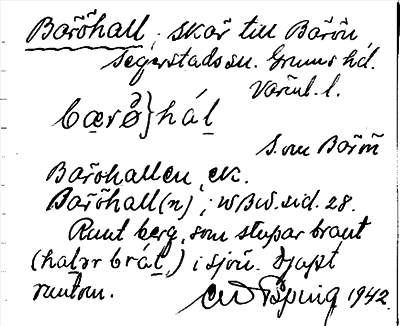 Baröhall, skär till Barön,
Segerstads sn. Grums hd.
Värml. l.
bærø̂}hál
S. om Barön
Baröhallen, ek.
Baröhall(n), WBW. sid. 28.
Runt berg, som stupar brant
(halər brát,) i sjön. Djupt
runtom.
1942.